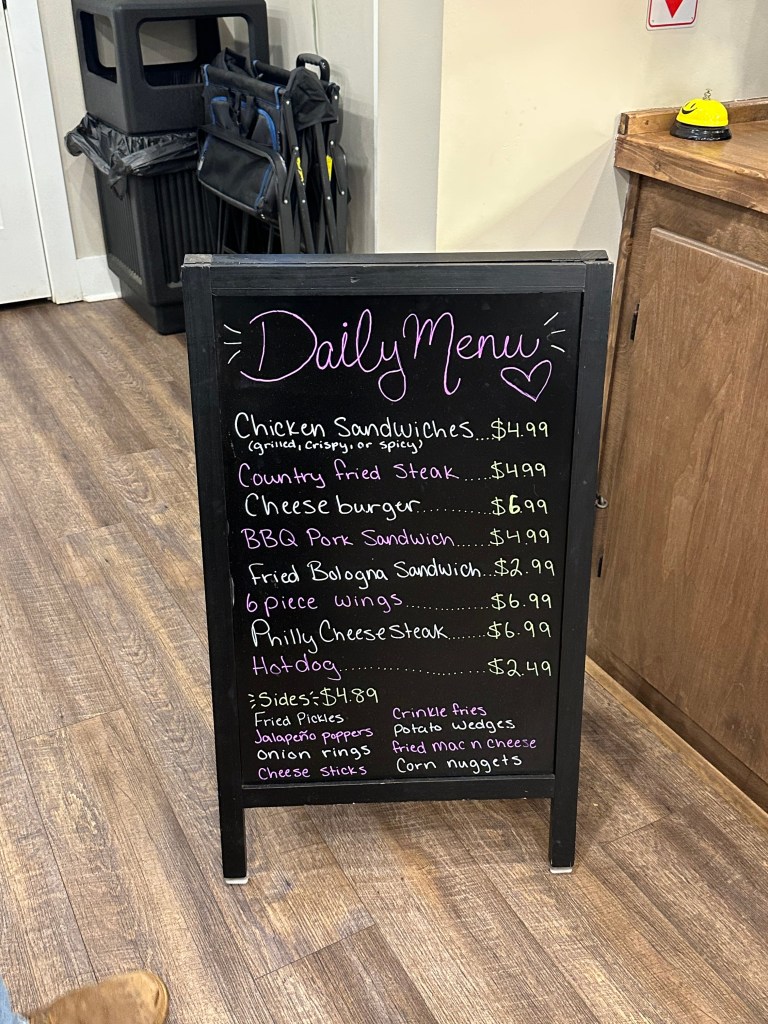 Daily Menu
Chicken Sandwiches...$4.99
(grilled, crispy, or spicy)
Country fried Steak.....$4.99
Cheeseburger..........$6.99
BBQ Pork Sandwich.....$4.99
Fried Bologna Sandwich...$2.99
6 piece wings.............$6.99
Philly Cheesesteak.......$6.99
Hotdog......................$2.49
Sides $4.89
Fried Pickles
Jalapeño poppers
onion rings
Cheese sticks
Crinkle fries
Potato wedges
fried mac n cheese
Corn nuggets